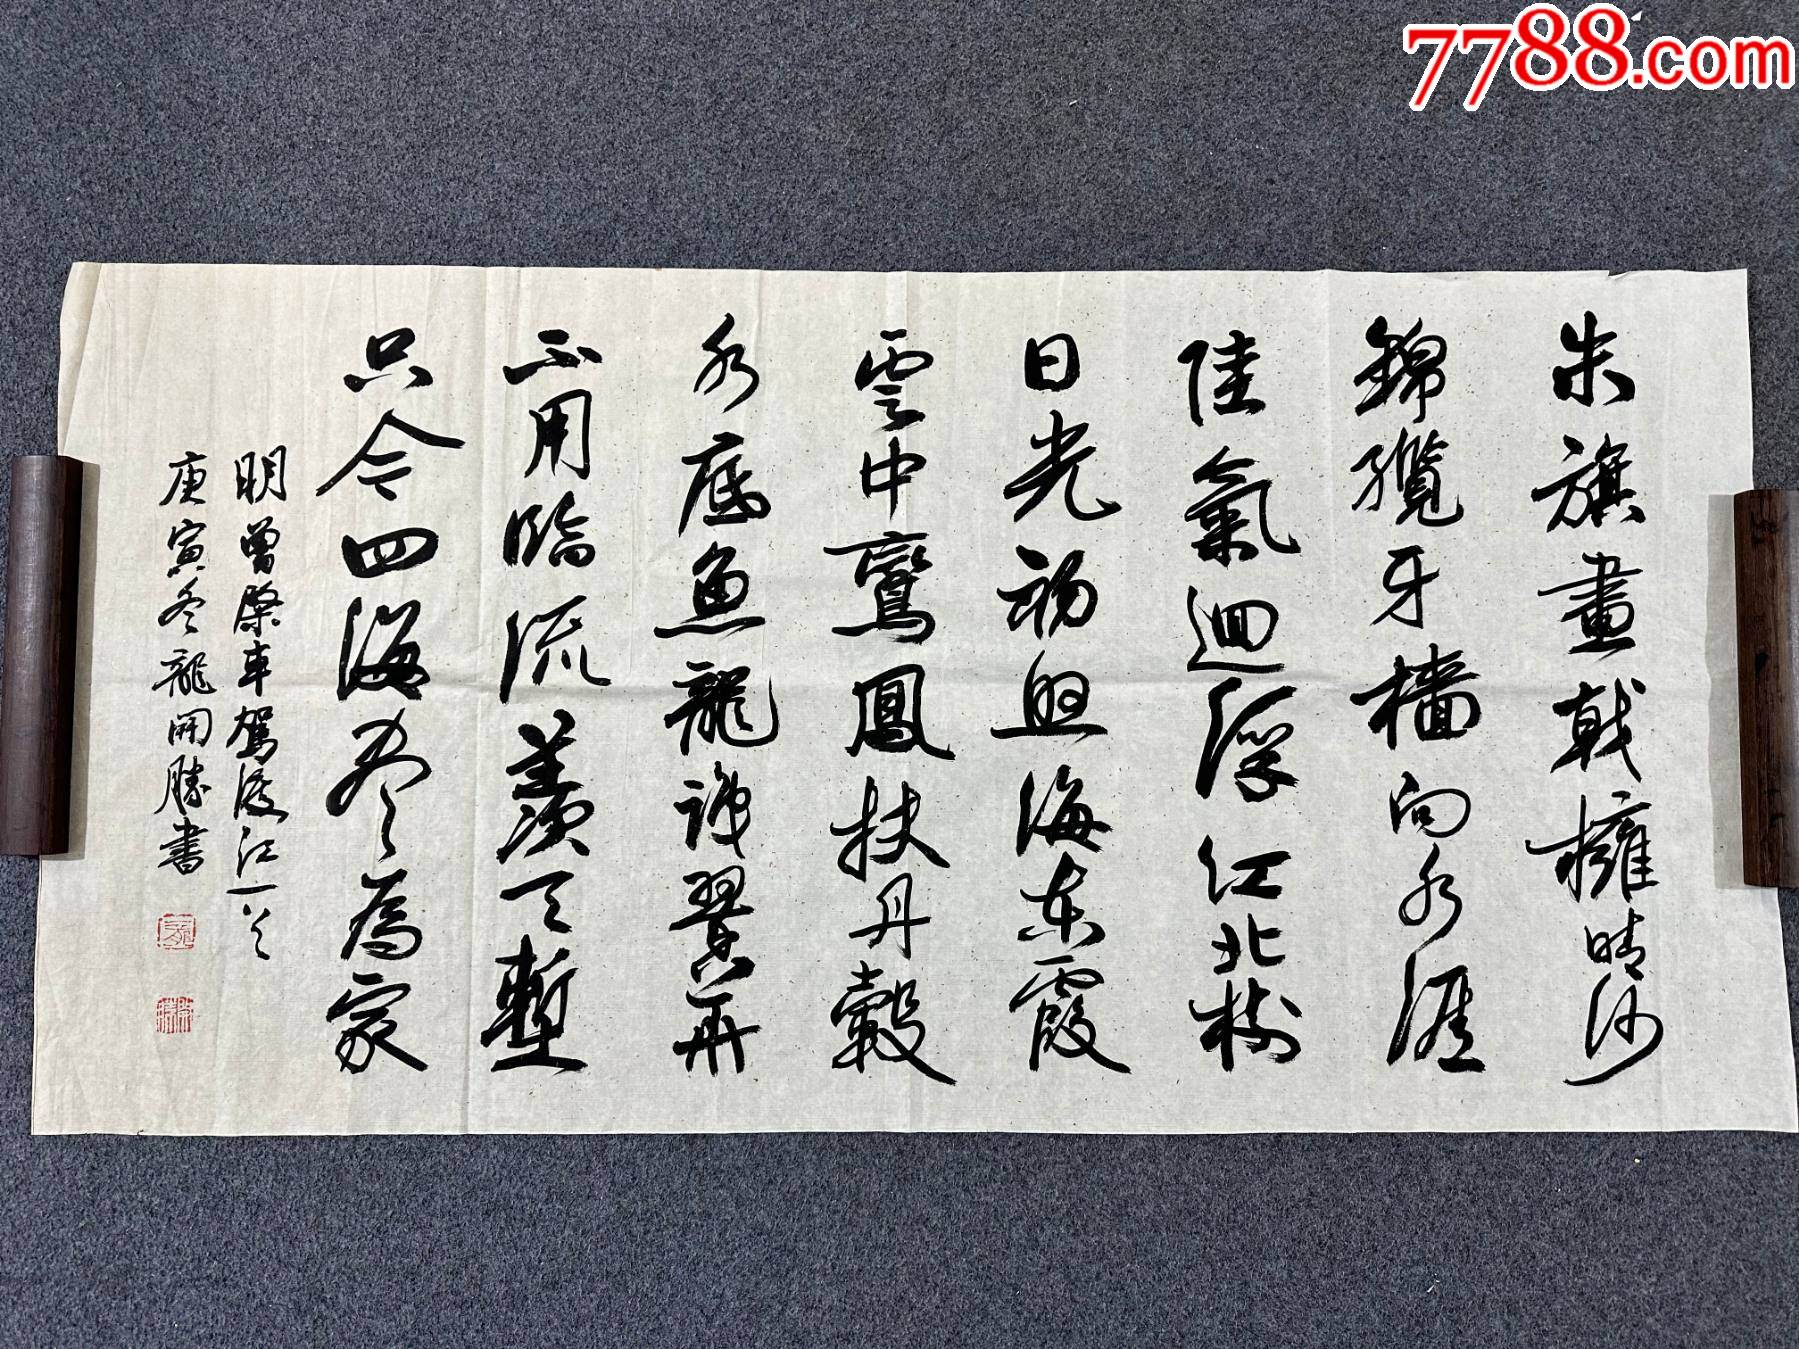 7788.com
朱旗畫戟擁晴沙
錦纜牙檣向水涯
陸氣迴浮江北樹
日光初照海東霞
雲中鸞鳳扶丹轂
水底魚龍識翠華
正用臨流羨天塹
只今四海盡為家
明曾棨車駕渡江一首
庚寅冬龍開勝書